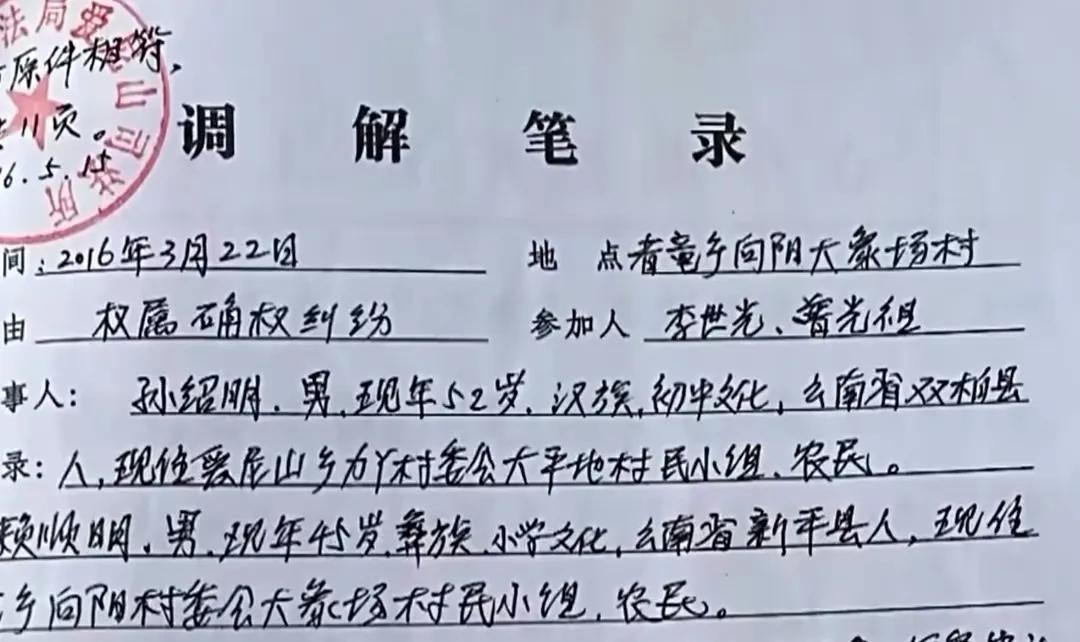 法局爱尼山司法所
原件相符，
11页。
6.5.15
调解笔录
间：2016年3月22日 地点者竜乡向阳大象场村
由 权属确权纠纷 参加人 李世光、普光祖
事人： 孙绍明，男，现年52岁，汉族，初中文化，云南省双柏县
录：人，现住爱尼山乡力丫村委会大平地村民小组，农民。
赖顺明，男，现年45岁，彝族，小学文化，云南省新平县人，现住
乡向阳村委会大象场村民小组，农民。